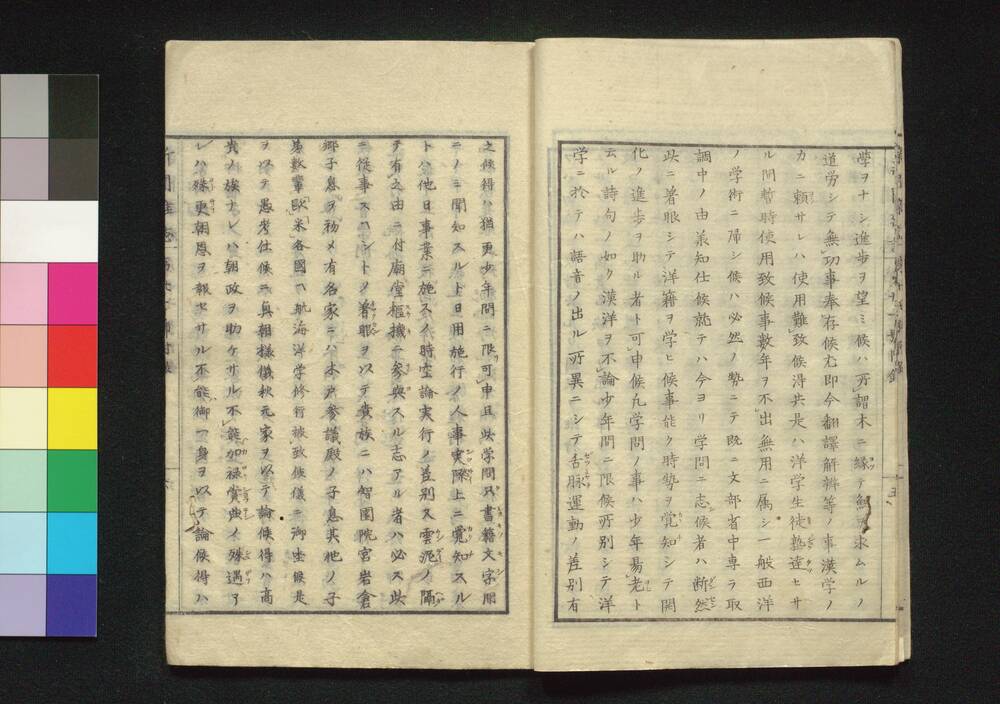 學ヲナシ進歩ヲ望ミ候ハ所謂木ニ縁テ魚ヲ求ムルノ
道労シテ無功事奉存候尤即今翻譯解辨等ノ事漢学ノ
カニ頼サレハ使用難致候得共是ハ洋学生徒熟達セサ
ル間暫時使用致候事数年ヲ不出無用ニ属シ一般西洋
ノ学術ニ帰シ候ハ必然ノ勢ニテ既ニ文部省中専ラ取
調中ノ由兼知仕候就テハ今ヨリ学問ニ志候者ハ断然
此ニ着眼シテ洋籍ヲ学ヒ候事能ク時勢ヲ覚知シテ開
化ノ進歩ヲ助ル者ト可申候凡学問ノ事ハ少年易老ト
云ル詩句ノ如ク漢洋ヲ不論少年間ニ限候所別シテ洋
学ニ於テハ語音ノ出ル所異ニシテ舌脉運動ノ差別有
之候得ハ猶更少年間ニ限可申且此学問只書籍文字用
ニノミ聞知スルト日用施行ノ人事実際上ニ覚知スル
トハ他日事業ニ施スノ時空論実行ノ差別ス雲泥ノ隔
テ有之由ニ付廟堂枢機ニ参與スル志アル者ハ必ス此
ニ従事スヘシトノ着眼ヲ以テ貴族ニハ智園院宮岩倉
郷子息ヲ初メ有名家ニハ木戸参議殿ノ子息其他ノ子
弟数輩歐米各國ヘ航海洋学修行被致候儀ニ御坐候是
ヲ以テ愚考仕候ニ真朝様儀秋元家ヲ以テ論候得ハ高
先ノ族ナレハ朝政ヲ助ケサル不能加禄賞典ノ殊遇ア
レハ殊更朝恩ヲ報セサル不能御一身ヲ以テ論候得ハ